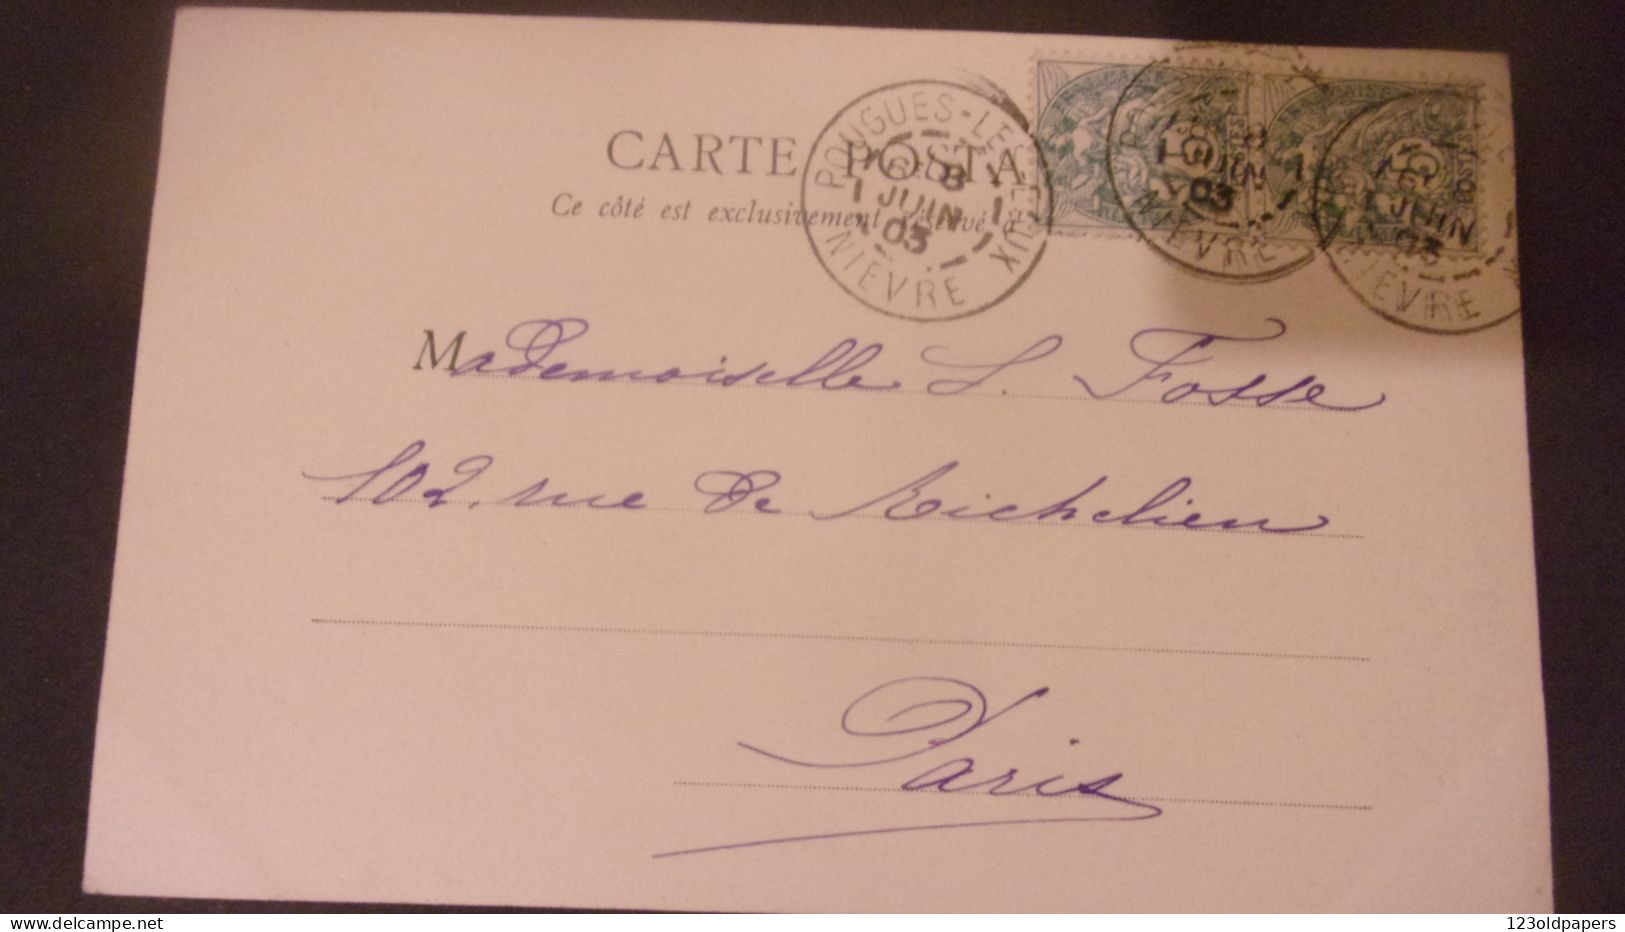 CARTE POSTA
Ce côté est exclusivement réservé à
POUGUES-LES-EAUX
8
1 JUIN
03
NIEVRE
8
1 JUIN
03
NIEVRE
JUIN
03
NIEVRE
Mademoiselle L. Fosse
102, rue de Richelieu
Paris
delcampe.net
123oldpapers